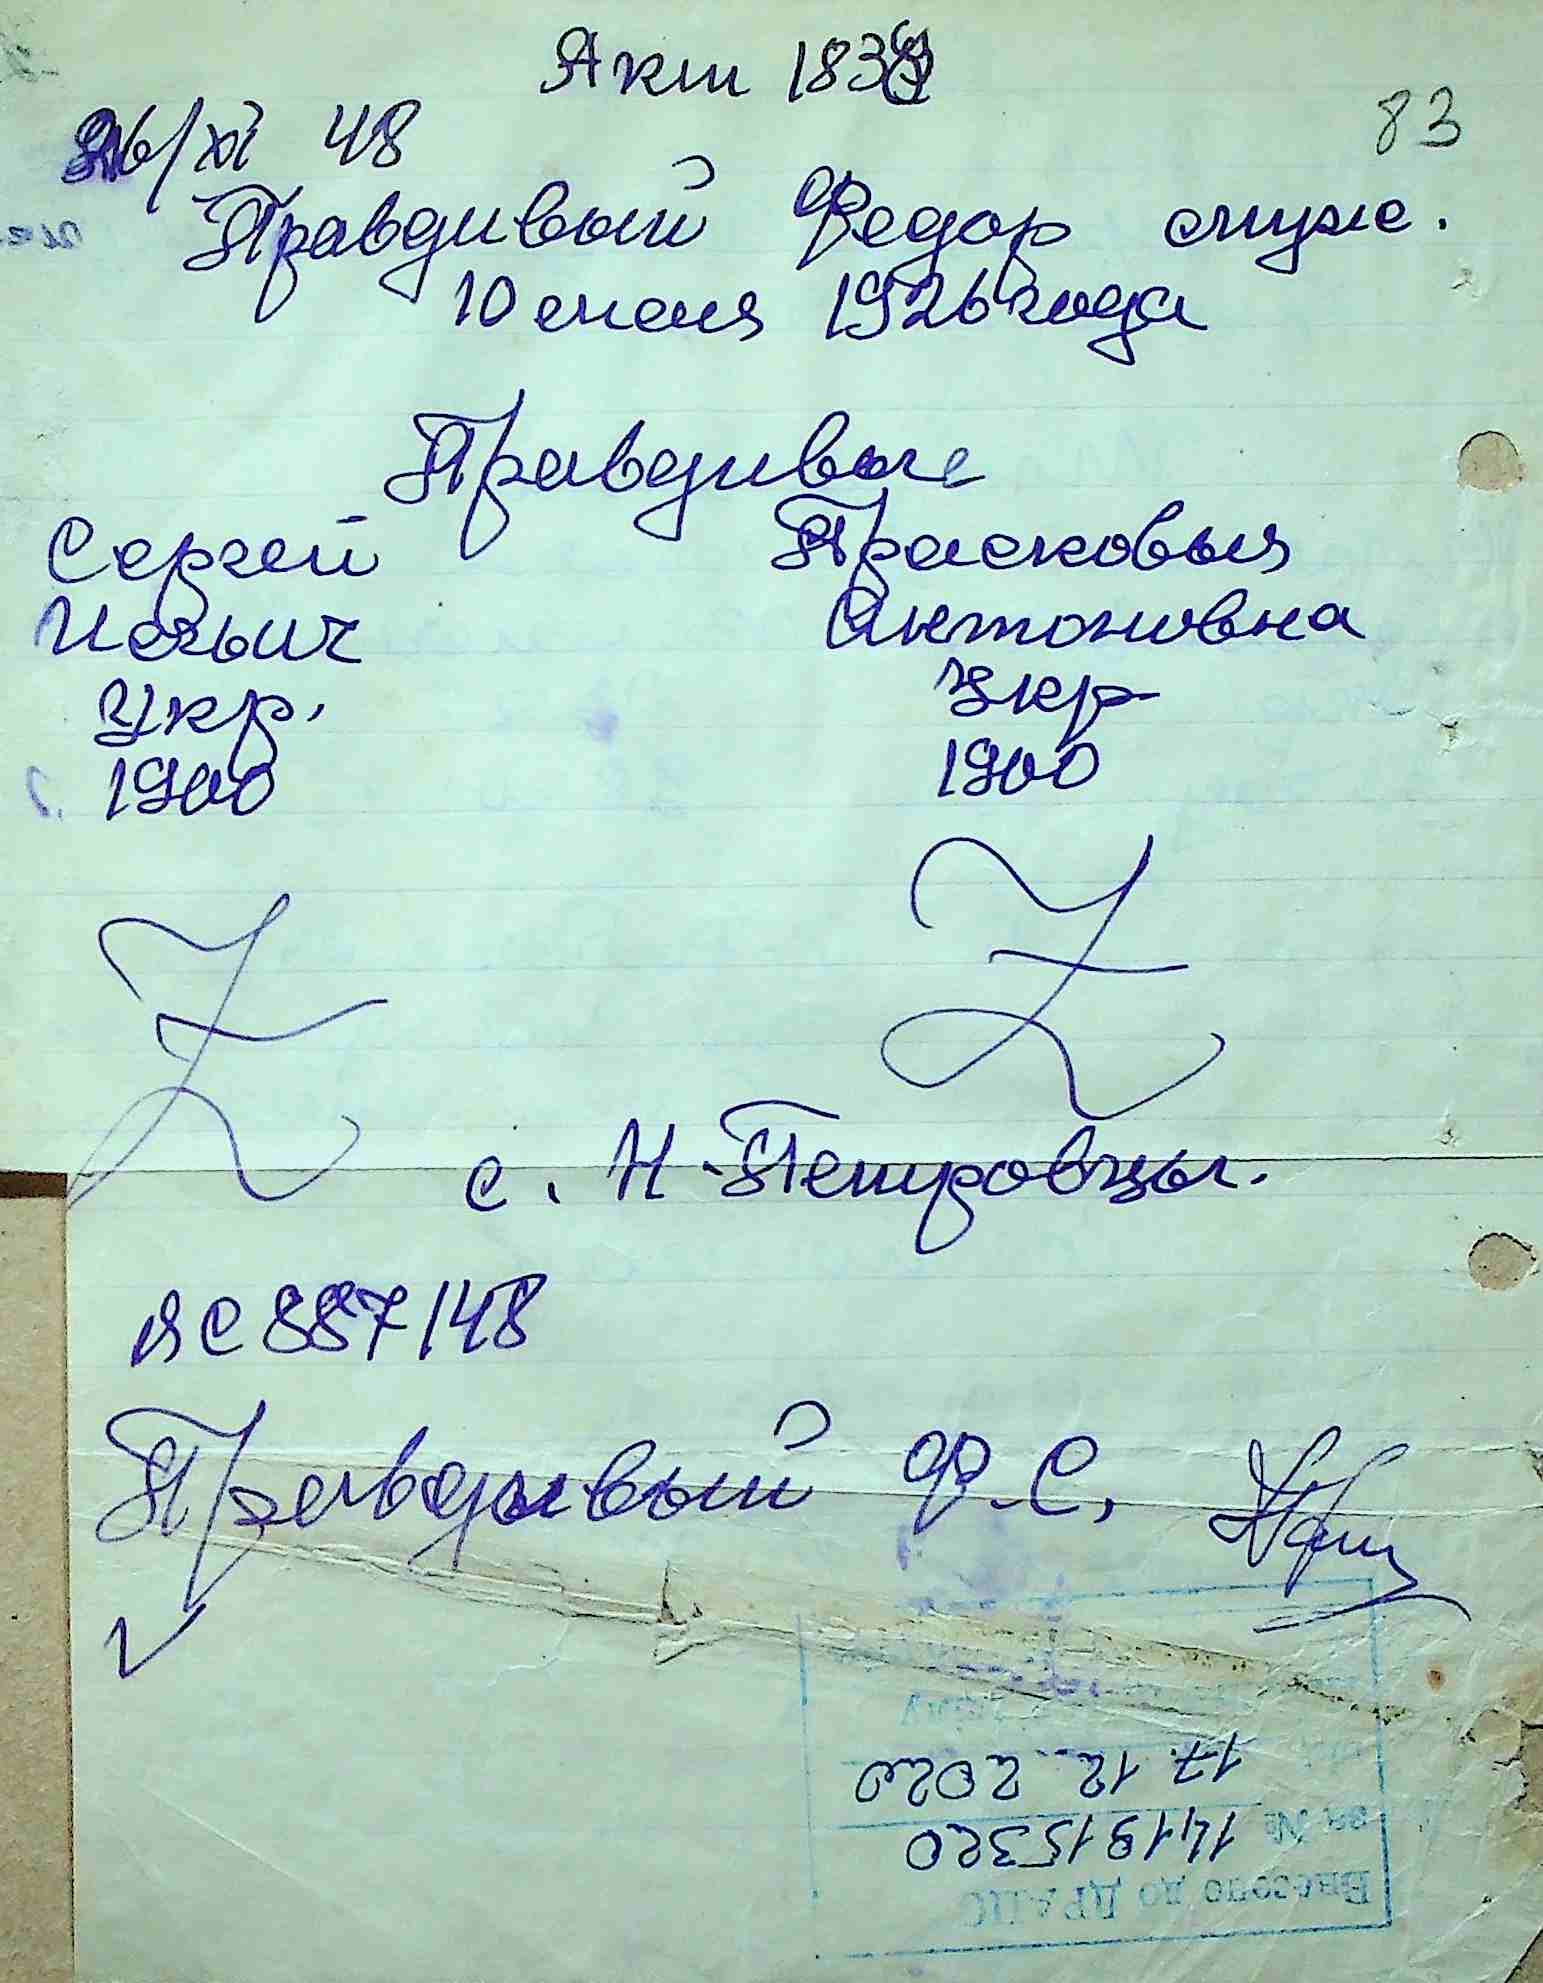 Акт 183
83
26/XI 48
Правдивый Федор муж.
10 июня 1926 года
Правдивые
Сергей Прасковья
Ильич Антоновна
Укр. Укр.
1900 1900
с. Н-Петровцы.
ЯС 887148
Правдивый Ф.С.
Внесено до ДРАЦС
за № 141915320
17.12.2020